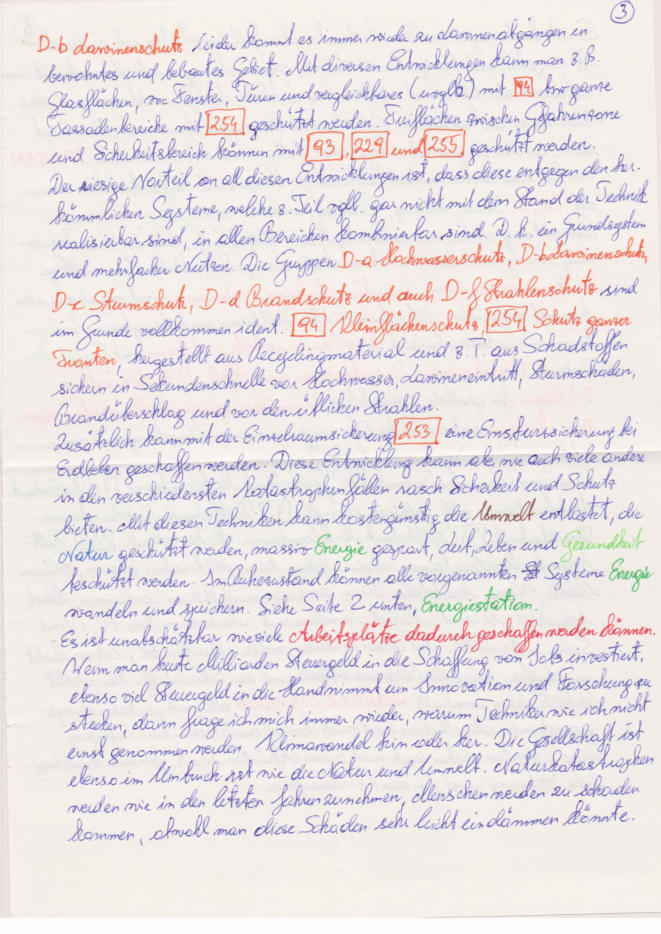 3
D-b Lawinenschutz Leider kommt es immer wieder zu Lawinenabgängen in
bewohntes und bebautes Gebiet. Mit diversen Entwicklungen kann man z.B.
Glasflächen, wie Fenster, Türen und vergleichbares (uvglb.) mit 94 bzw ganze
Fassadenbereiche mit 254 geschützt werden. Freiflächen zwischen Gefahrenzone
und Sicherheitsbereich können mit 93, 229 und 255 geschützt werden.
Der riesige Vorteil an all diesen Entwicklungen ist, dass diese entgegen den her-
kömmlichen Systeme, welche z. Teil vgll. gar nicht mit dem Stand der Technik
realisierbar sind, in allen Bereichen kombinierbar sind. D.h. ein Grundsystem
und mehrfacher Nutzen. Die Gruppen D-a Hochwasserschutz, D-b Lawinenschutz,
D-c Sturmschutz, D-d Brandschutz und auch D-f Strahlenschutz sind
im Grunde vollkommen ident. 94 Kleinflächenschutz, 254 Schutz ganzer
Fronten, hergestellt aus Recyclingmaterial und z.T. aus Schadstoffen
sichern in Sekundenschnelle vor Hochwasser, Lawineneintritt, Sturmschaden,
Brandüberschlag und vor den üblichen Strahlen.
Zusätzlich kann mit der Einzelraumsicherung 253 eine Einsturzsicherung bei
Erdbeben geschaffen werden. Diese Entwicklung kann aber, wie auch viele andere
in den verschiedensten Katastrophenfällen rasch Sicherheit und Schutz
bieten. Mit diesen Techniken kann kostengünstig die Umwelt entlastet, die
Natur geschützt werden, massiv Energie gespart, Leib, Leben und Gesundheit
beschützt werden. Im Ruhezustand können alle vorgenannten Systeme Energie
wandeln und speichern. Siehe Seite 2 unten, Energiestation.
Es ist unabschätzbar wieviele Arbeitsplätze dadurch geschaffen werden können.
Wenn man heute Milliarden Steuergeld in die Schaffung von Jobs investiert,
ebenso viel Steuergeld in die Hand nimmt um Innovation und Forschung zu
stecken, dann frage ich mich immer wieder, warum Techniker wie ich nicht
ernst genommen werden. Klimawandel hin oder her. Die Gesellschaft ist
ebenso im Umbruch wie die Natur und Umwelt. Naturkatastrophen
werden wie in den letzten Jahren zunehmen, Menschen werden zu schaden
kommen, obwohl man diese Schäden sehr leicht eindämmen könnte.